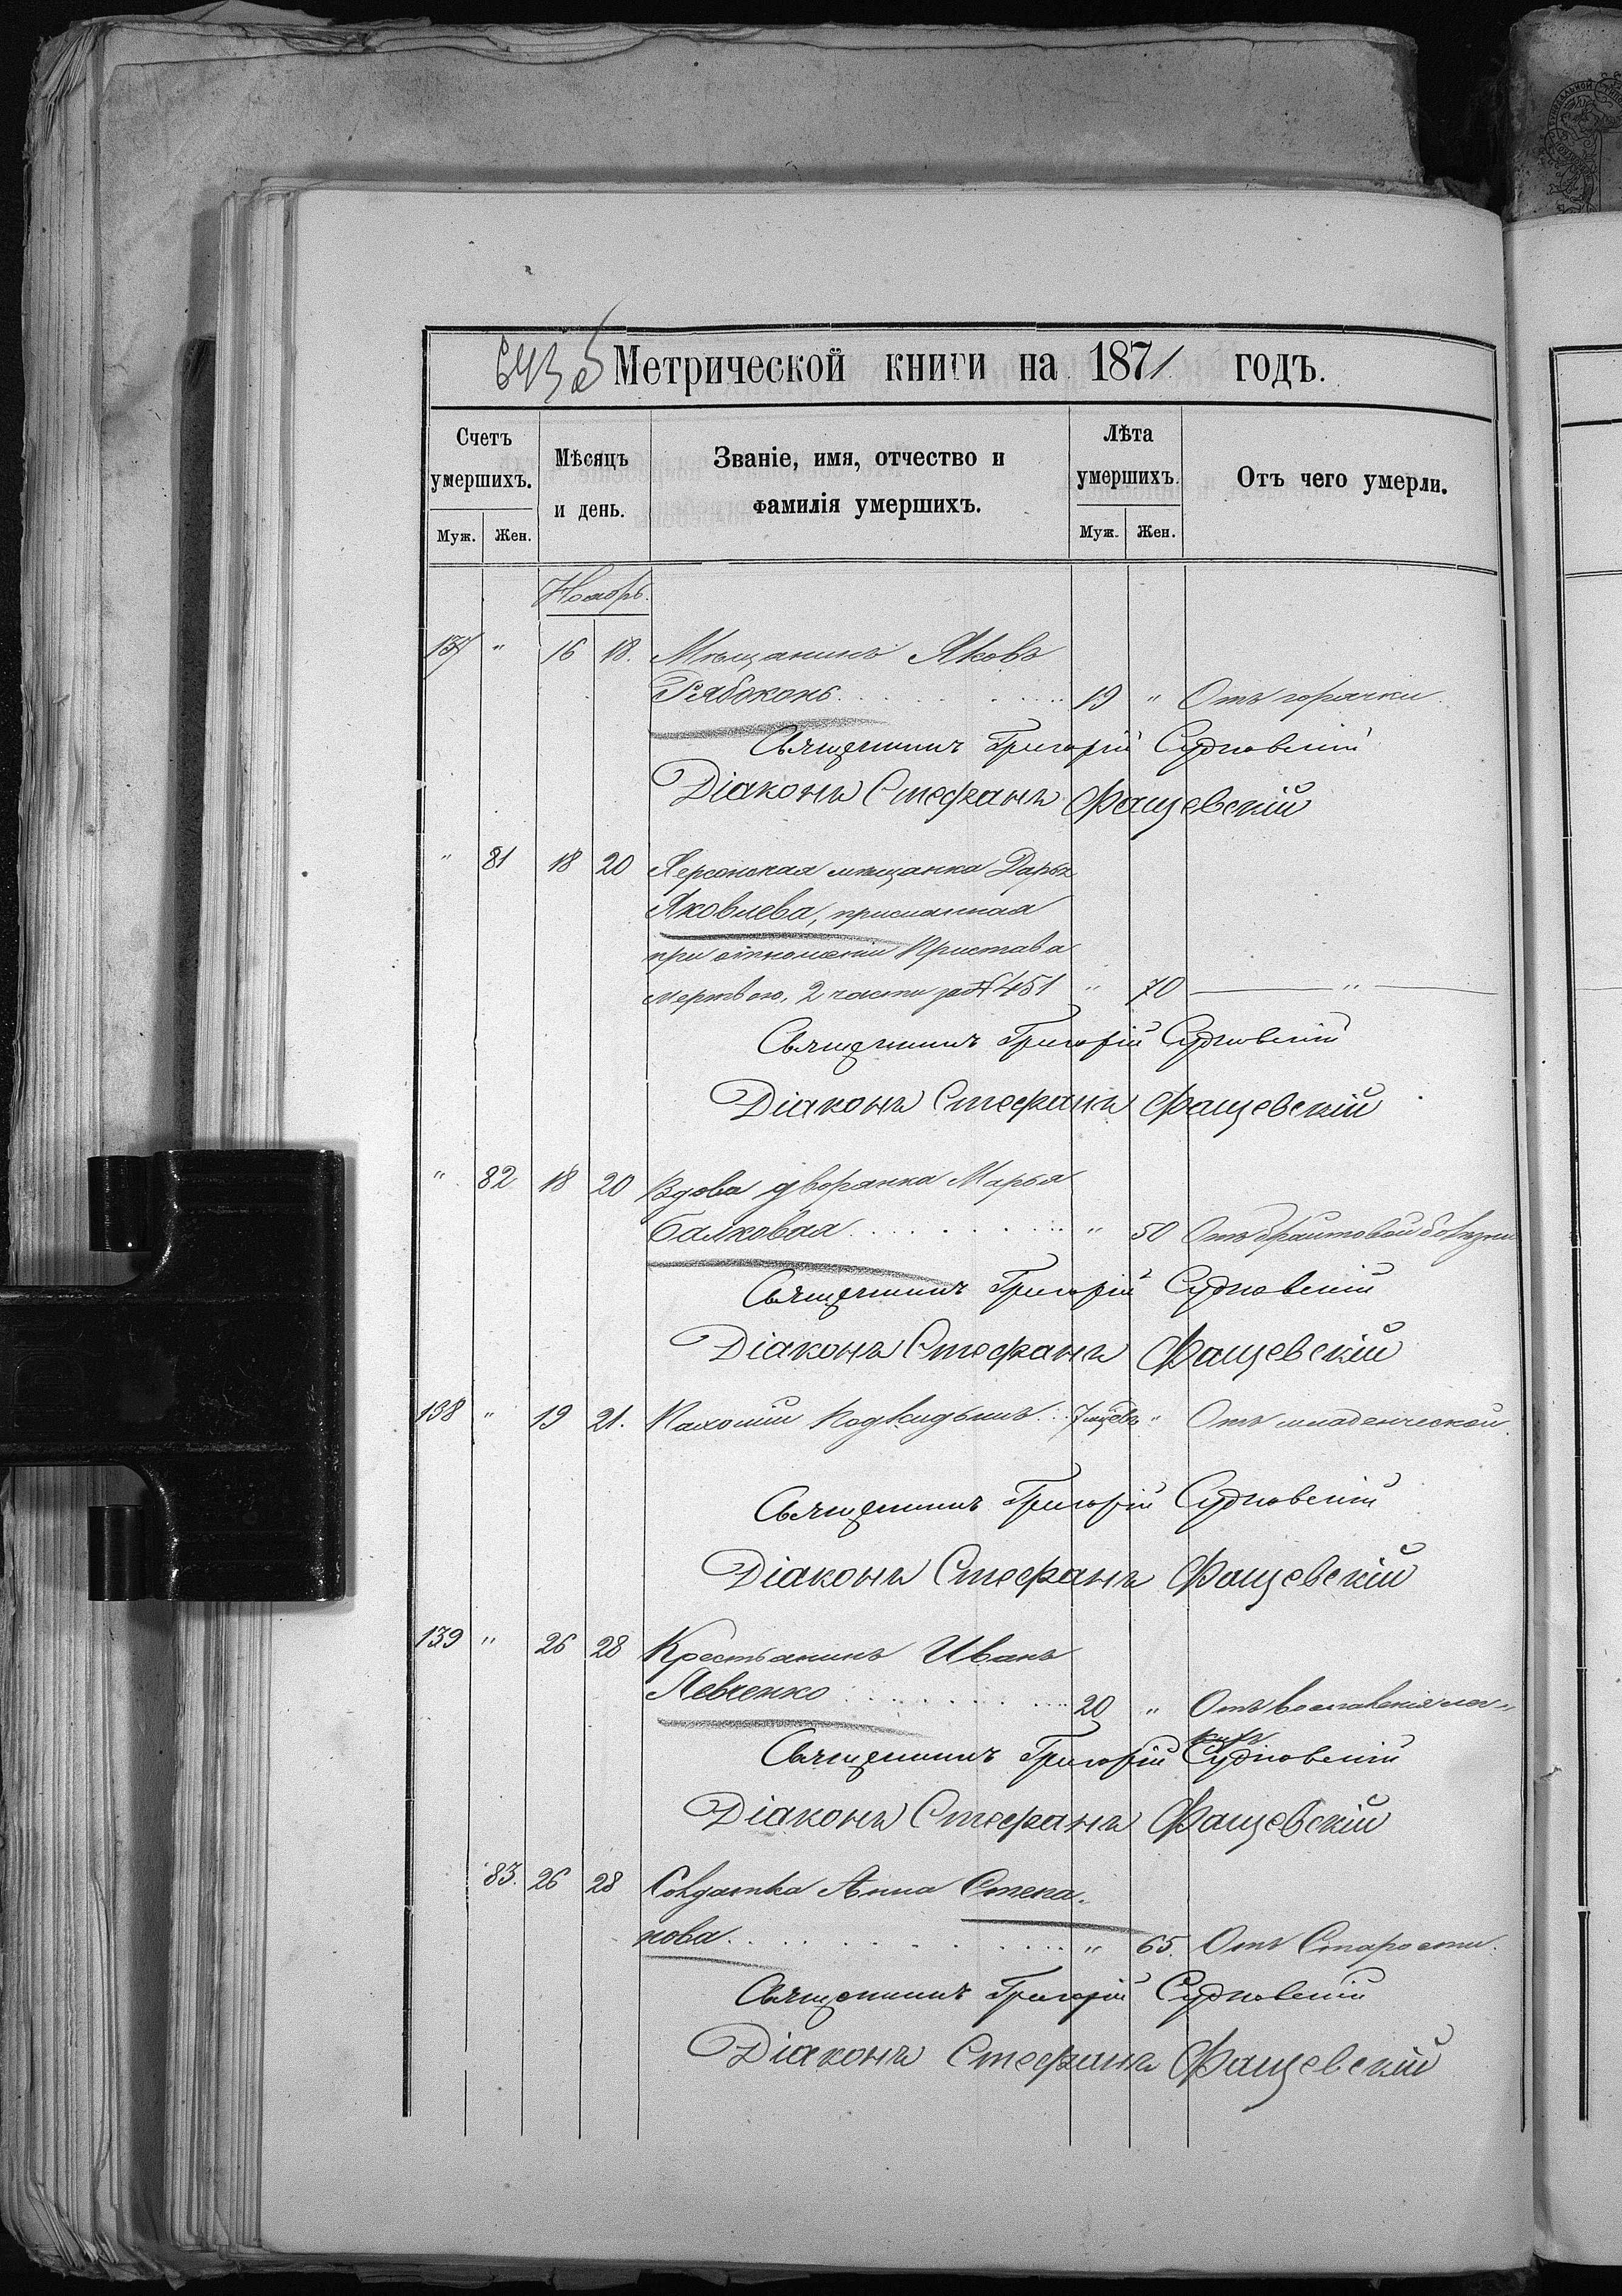 643 об Метрической книги на 1871 годъ.
Счетъ умершихъ.
Муж. Жен.
Мѣсяцъ и день.
Званіе, имя, отчество и
фамилія умершихъ.
Лѣта умершихъ.
Муж. Жен.
Отъ чего умерли.
Ноябрь.
137 " 16 18. Мѣщанинъ Яковъ
Рябоконь 19 " Отъ горячки.
Священникъ Григорій Судковскій
Діаконъ Стефанъ Фащевскій
" 81 18 20 Херсонская мѣщанка Дарья
Яковлева, присланная
при отношеніи Пристава
мертвою, 2 части за № 451 " 70 "
Священникъ Григорій Судковскій
Діаконъ Стефанъ Фащевскій
" 82 18 20 Вдова дворянка Марья
Балковая " 50 Отъ болѣзни
Священникъ Григорій Судковскій
Діаконъ Стефанъ Фащевскій
138 " 19 21. Подкидышъ 7 мцевъ " Отъ младенческой.
Священникъ Григорій Судковскій
Діаконъ Стефанъ Фащевскій
139 " 26 28 Крестьянинъ Иванъ
Левченко 20 " Отъ воспаленія лег-
кихъ
Священникъ Григорій Судковскій
Діаконъ Стефанъ Фащевскій
83. 26 28 Солдатка Анна Степа-
нова " 65. Отъ Старости.
Священникъ Григорій Судковскій
Діаконъ Стефанъ Фащевскій